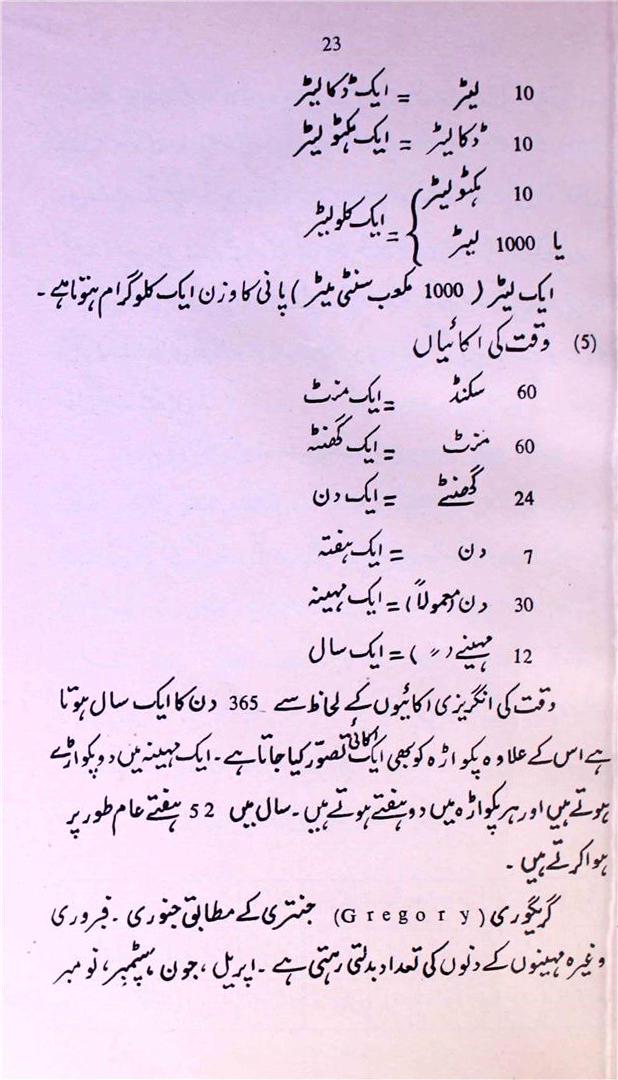 23
10 لیٹر = ایک ڈکالیٹر
10 ڈکالیٹر = ایک ہکٹولیٹر
10 ہکٹولیٹر
یا 1000 لیٹر } = ایک کلولیٹر
ایک لیٹر ( 1000 مکعب سنٹی میٹر ) پانی کا وزن ایک کلوگرام ہوتا ہے ۔
(5) وقت کی اکائیاں
60 سکنڈ = ایک منٹ
60 منٹ = ایک گھنٹہ
24 گھنٹے = ایک دن
7 دن = ایک ہفتہ
30 دن (معمولاً) = ایک مہینہ
12 مہینے ( 〃 ) = ایک سال
وقت کی انگریزی اکائیوں کے لحاظ سے 365 دن کا ایک سال ہوتا
ہے اس کے علاوہ پکواڑہ کو بھی ایک اکائی تصوّر کیا جاتا ہے ۔ ایک مہینہ میں دو پکواڑے
ہوتے ہیں اور ہر پکواڑہ میں دو ہفتے ہوتے ہیں ۔ سال میں 52 ہفتے عام طور پر
ہوا کرتے ہیں ۔
گریگوری (Gregory) جنتری کے مطابق جنوری ۔ فبروری
وغیرہ مہینوں کے دنوں کی تعداد بدلتی رہتی ہے ۔ اپریل ، جون ، سپٹمبر ، نومبر